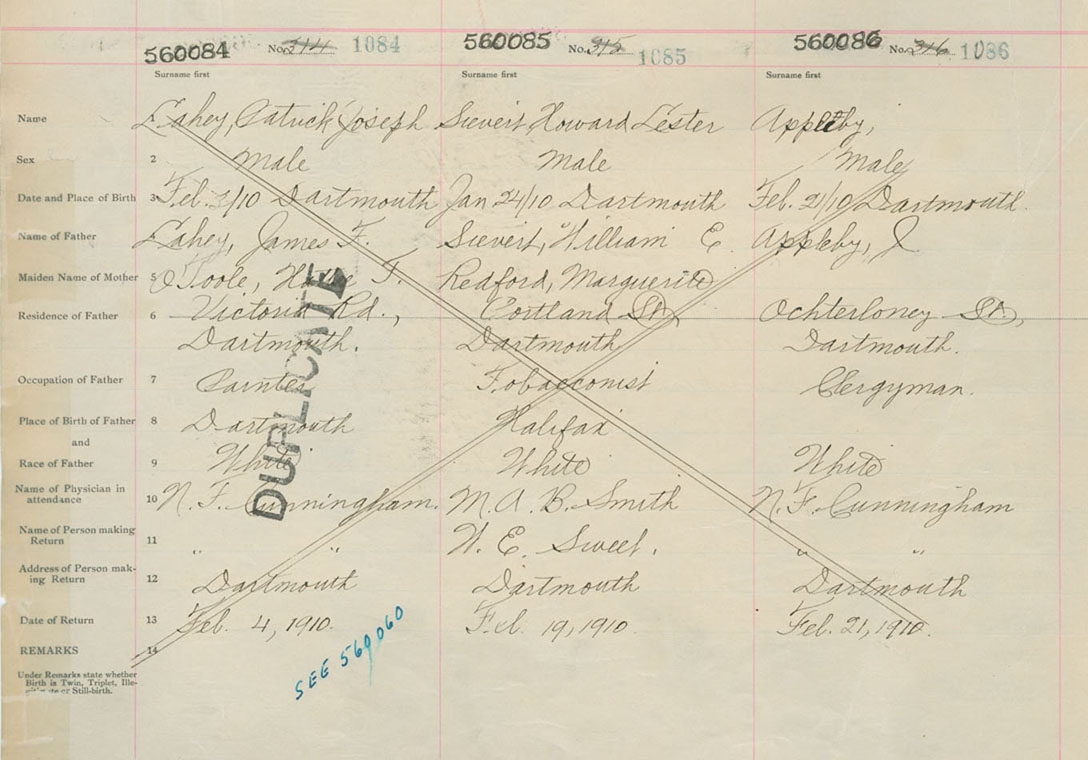 560084 No. 314 1084 560085 No. 315 1085 560086 No. 316 1086
Surname first Surname first Surname first
Name Lahey, Patrick Joseph Sievert, Howard Lester Appleby,
Sex 2 Male Male Male
Date and Place of Birth 3 Feb. /10 Dartmouth Jan 24/10 Dartmouth Feb. 21/10 Dartmouth.
Name of Father 4 Lahey, James F. Sievert, William E. Appleby, J
Maiden Name of Mother 5 O'Toole, T. Redford, Marguerite
Residence of Father 6 Victoria Rd., Portland St., Ochterloney St.,
Dartmouth. Dartmouth Dartmouth.
Occupation of Father 7 Painter Tobacconist Clergyman.
Place of Birth of Father 8 Dartmouth Halifax
and
Race of Father 9 White White White
Name of Physician in
attendance 10 N. F. Cunningham. M. A. B. Smith N. F. Cunningham
Name of Person making
Return 11 " " W. E. Sweet. " "
Address of Person mak-
ing Return 12 Dartmouth Dartmouth Dartmouth
Date of Return 13 Feb. 4, 1910. Feb. 19, 1910 Feb. 21, 1910.
REMARKS 14
Under Remarks state whether
Birth is Twin, Triplet, Ille-
or Still-birth.
DUPLICATE
SEE 560060